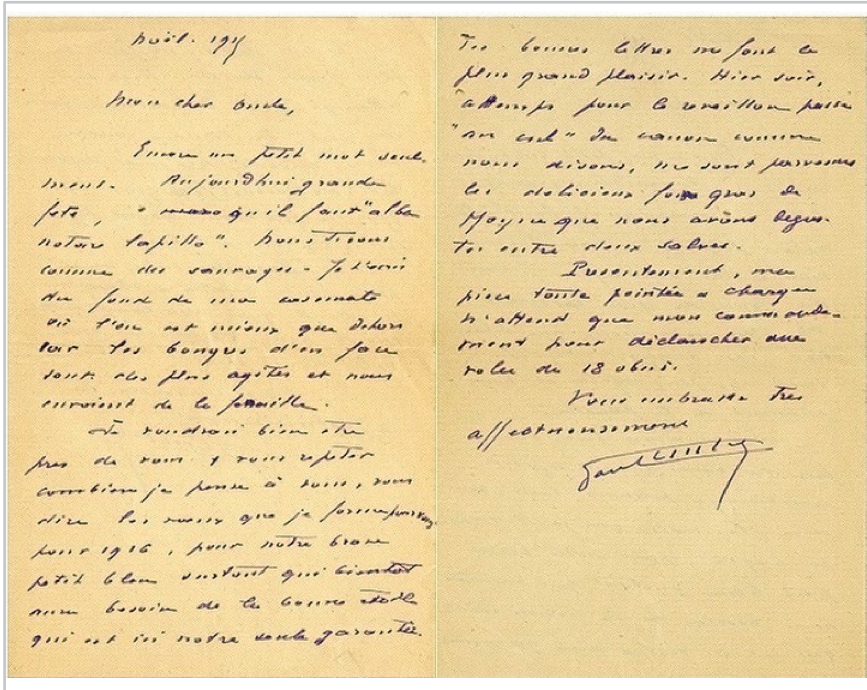 Noël. 1915
Mon cher Oncle,
Encore un petit mot seule-
ment. Aujourd'hui grande
fete, qu'il faut "albo
notare lapillo". Nous vivons
comme des sauvages - Je t'ecris
du fond de ma casemate
où l'on est mieux que dehors
car les boches d'en face
sont des plus agités et nous
envoient de la ferraille.
Je voudrai bien etre
pres de vous & vous repeter
combien je pense à vous, vous
dire les voeux que je forme pour vous
pour 1916, pour notre brave
petit bleu surtout qui bientot
aura besoin de la bonne étoile
qui est ici notre seule garantie.
Tes bonnes lettres me font le
plus grand plaisir. Hier soir,
a temps pour le reveillon passé
"au cul" du canon comme
nous disons, me sont parvenus
les delicieux foie gras de
que nous avons degus-
tes entre deux salves.
Presentement, ma
piece toute pointée & chargée
n'attend que mon commande-
ment pour déclancher une
volée de 18 obus.
Vous embrasse tres
affectueusement
Paul